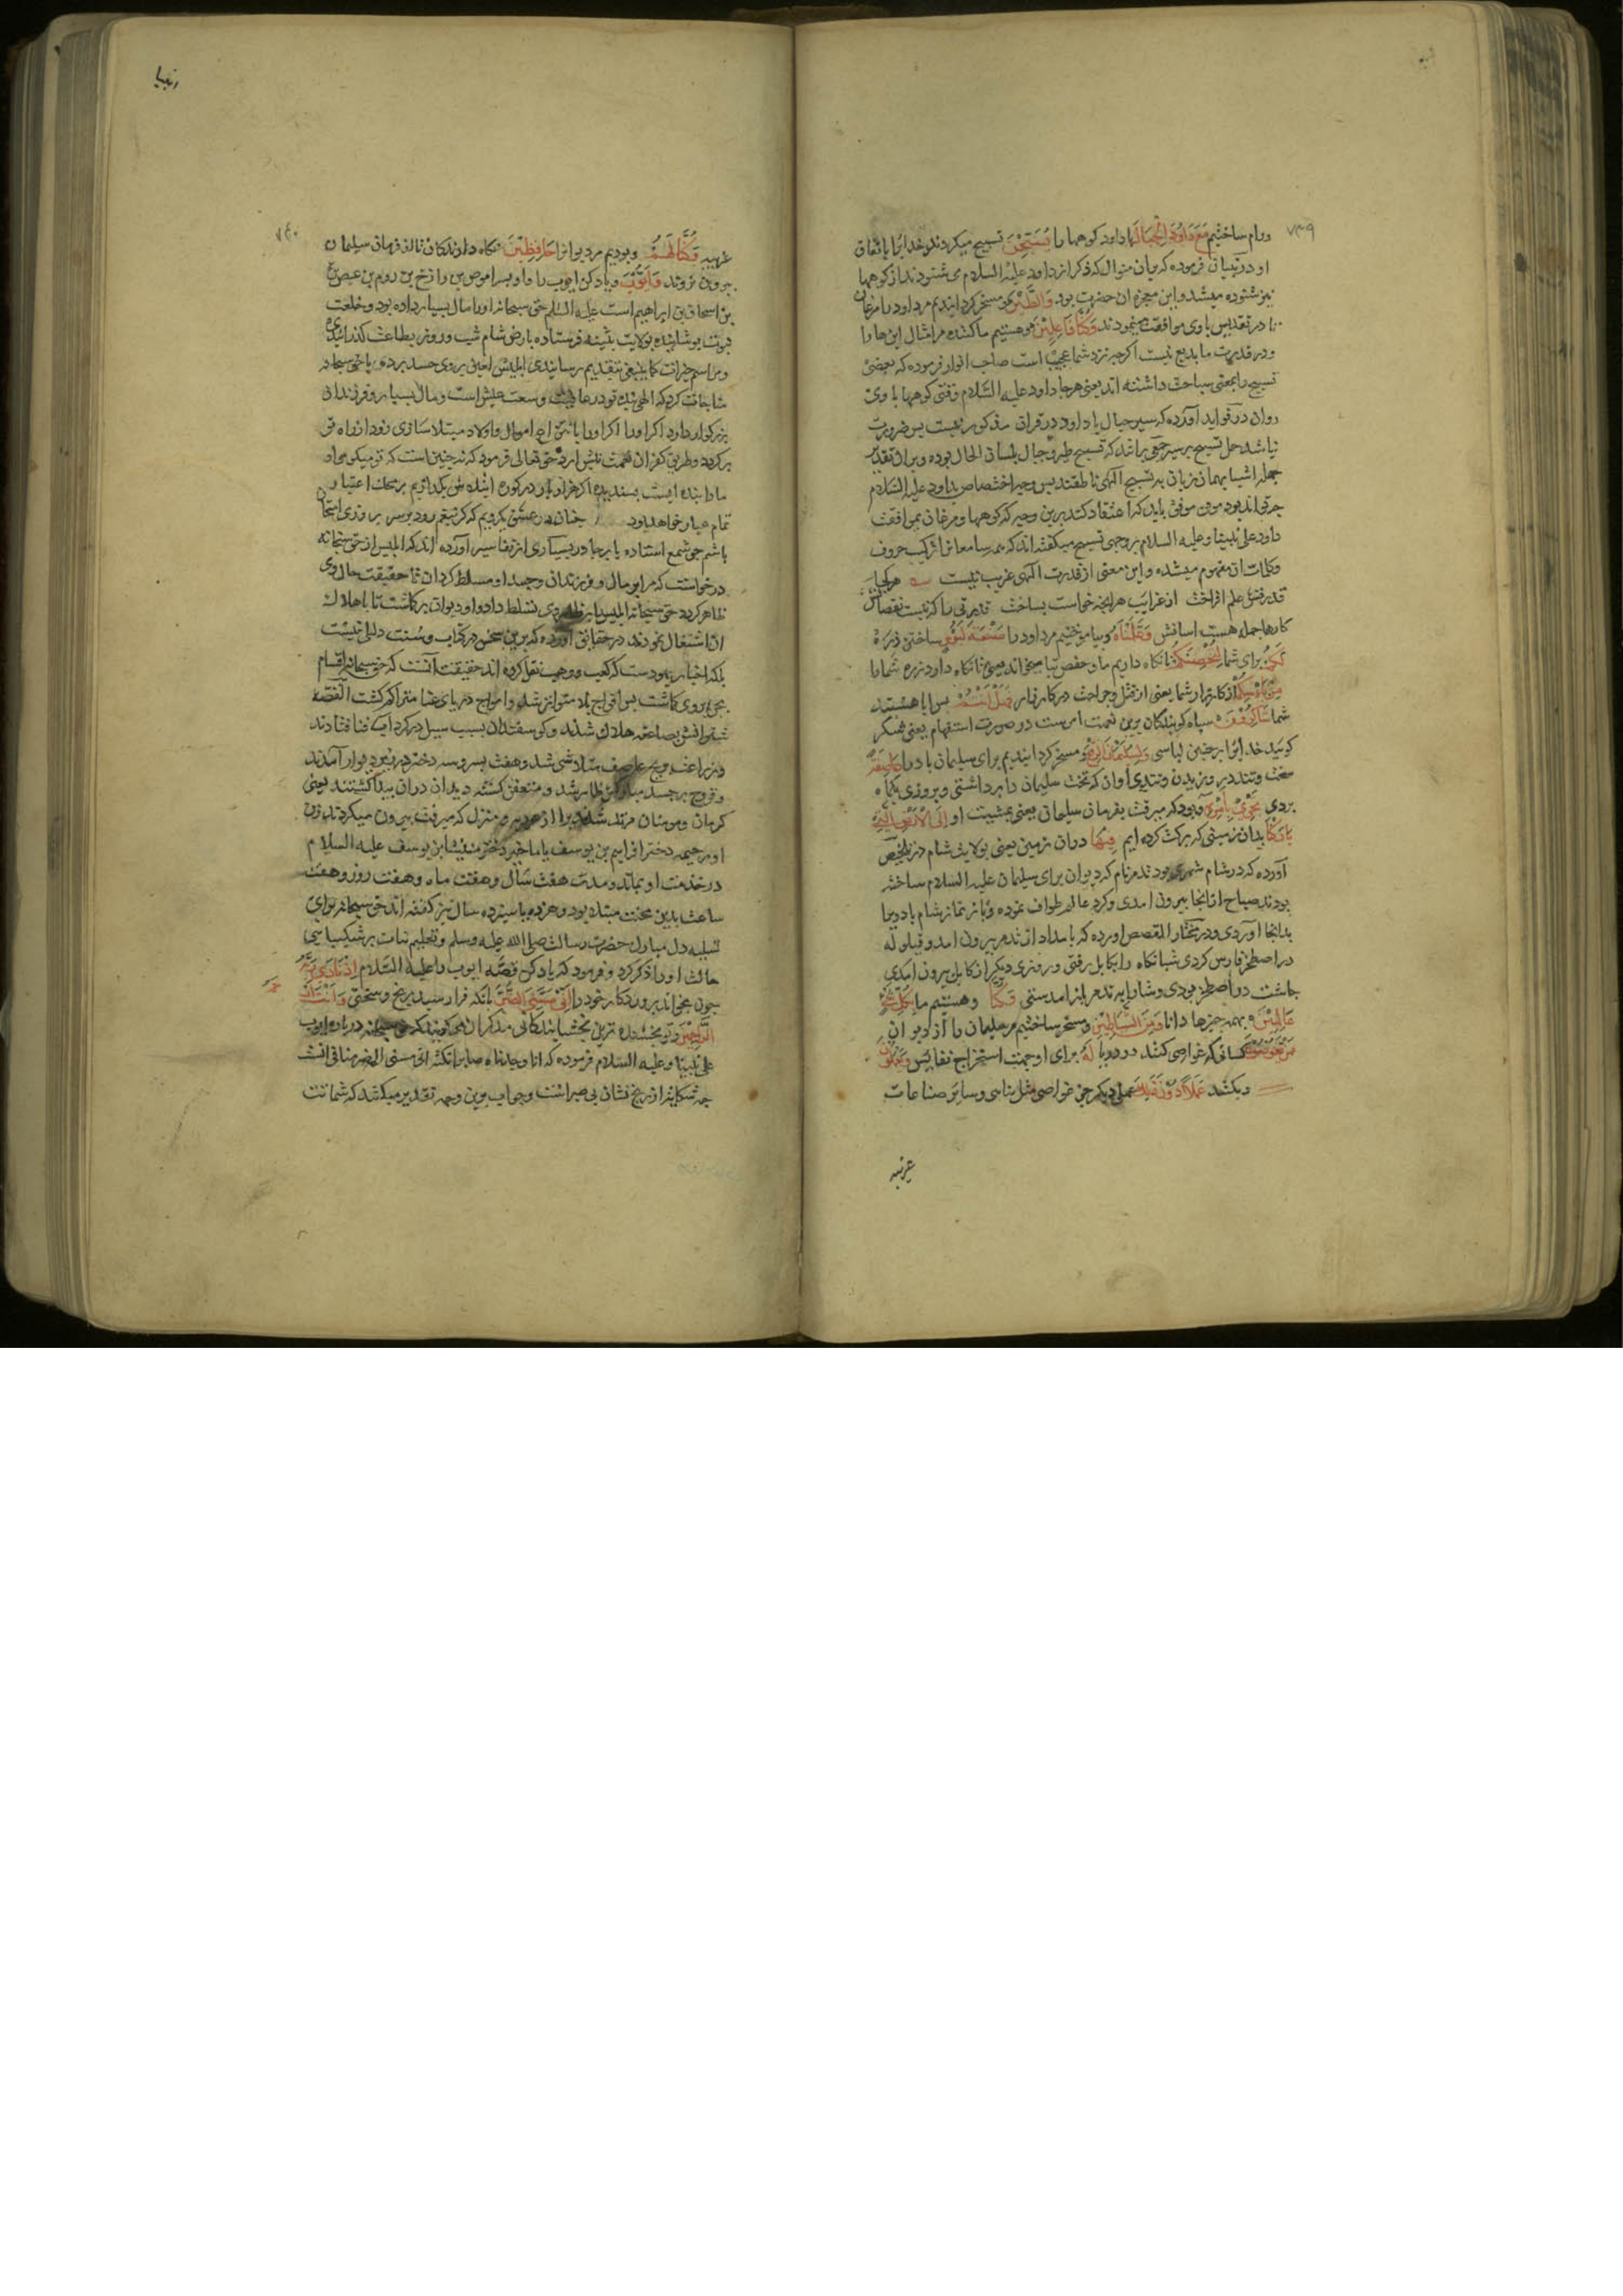 ۷۳۹
ورام ساختیم مَعَ دَاوُدَ الْجِبَالَ با داود کوهها را یُسَبِّحْنَ تسبیح میکردند خدایرا باتفاق
او در تبیان فرموده که بدان منوال که ذکر از داود علیه السلام می شنودند از کوهها
نیز شنوده میشد و این معجزه ان حضرت بود وَالطَّیْرَ و مسخر کردانیدیم مر داود را مرغان
تا در تقدیس با وی موافقت مینمودند وَکُنَّا فَاعِلِیْنَ و هستیم ما کننده مر امثال این ها را
و در قدرت ما بدیع نیست اکرچه نزد شما عجیب است صاحب انوار فرموده که بعضی
تسبیح را بمعنی سباحت داشته اند یعنی هرجا داود علیه السّلام رفتی کوهها با وی
روان در فواید آورده که سیر جبال با داود در قران مذکور نیست پس ضرورت
نباشد حمل تسبیح بر سیر حق براند که تسبیح طیر و جبال بلسان الحال بوده و بران تقدیر
جمله اشیا بهمان زبان به تسبیح الهی ناطقند پس وجه اختصاص بداود علیه السّلام
چه تواند بود مومن موفق باید که اعتقاد کند برین وجه که کوهها و مرغان بموافقت
داود علی نبینا و علیه السلام بر وجهی تسبیح میکفته اند که همه سامعانرا ترکیب حروف
و کلمات ان مفهوم میشده و این معنی از قدرت الهی غریب نیست هر کجا
قدرتش علم افراخت از غرایب هرانچه خواست بساخت قدرتی را که نیست نقصانش
کارها جمله هست اسانش وَعَلَّمْنَاهُ و بیاموختیم مر داود را صَنْعَةَ لَبُوْسٍ ساختن زره
لَکُمْ برای شما لِتُحْصِنَکُمْ تا نکاه داریم ما و حفص بتا میخواند یعنی تا نکاه دارد زره شما را
مِنْ بَاْسِکُمْ از کارزار شما یعنی از قتل و جراحت در کارزار فَهَلْ اَنْتُمْ پس ایا هستید
شما شَاکِرُوْنَ سپاه کویندکان برین نعمت امرست در صورت استفهام یعنی شکر
کوئید خدایرا بر چنین لباسی وَلِسُلَیْمَانَ الرِّیْحَ و مسخر کردانیدیم برای سلیمان باد را عَاصِفَةً
سخت و تند در وزیدن و تندی اوان که تخت سلیمان را برداشتی و بروزی یکماه
بردی تَجْرِیْ بِاَمْرِهٖ و بود که میرفت بفرمان سلیمان یعنی بمشیت او اِلَی الْاَرْضِ الَّتِیْ
بَارَکْنَا بدان زمینی که برکت کرده ایم فِیْهَا دران زمین یعنی بولایت شام در تلخیص
آورده که در شام شهری بود تدمر نام که دیوان برای سلیمان علیه السلام ساخته
بودند صباح از انجا بیرون امدی و کرد عالم طواف نموده و باز نماز شام باد ویرا
بدانجا آوردی و در مختار القصص اورده که بامداد از تدمر بیرون امد و قیلوله
در اصطخر فارس کردی شبانکاه را بکابل رفتی و روزی دیکر از کابل بیرون امدی
چاشت در اصطخر بودی و شام به تدمر باز امدستی وَکُنَّا و هستیم ما بِکُلِّ شَیْءٍ
عَالِمِیْنَ بهمه چیزها دانا وَمِنَ الشَّیَاطِیْنِ و مسخر ساختیم مر سلیمان را از دیوان
مَنْ یَّغُوْصُوْنَ کسانی که غواصی کنند در دریا لَهٗ برای او جهت استخراج نفایس وَیَعْمَلُوْنَ
و بکنند عَمَلًا دُوْنَ ذٰلِکَ عملی دیکر جز غواصی مثل بنائی و سایر صناعات
غریبه
انبیا
۷۴۰
غریبه وَکُنَّا لَهُمْ و بودیم مر دیوانرا حَافِظِیْنَ نکاه دارندکان تا از فرمان سلیمان
بیرون نروند وَاَیُّوْبَ و یاد کن ایوب را و او پسر اموص بن رازخ بن روم بن عیص
بن اسحاق بن ابراهیم است علیه السلام حق سبحانه او را مال بسیار داده بود و خلعت
نبوت پوشانیده بولایت بثنیه فرستاده بارض شام شب و روز بطاعت کذرانیدی
و مراسم خیرات کما ینبغی بتقدیم رسانیدی ابلیس لعین بروی حسد برد و با حق سبحانه
مناجات کرد که الهی بنده تو در عافیت و وسعت عیش است و مال بسیار و فرزندان
بزرکوار دارد اکر او را بانتزاع اموال و اولاد مبتلا سازی زود از راه تو
برکردد و طریق کفران نعمت پیش ارد حق تعالی فرمود که نه چنین است که تو میکوئی او
ما را بنده ایست پسندیده اکر هزار بار در کوره ابتلاش بکدازیم بر محک اعتبار
تمام عیار خواهد بود چنان در عشق یکرویم که کر تیغم رود بر سر بروزی امتحان
باشم چو شمع استاده پا برجا در بسیاری از تفاسیر آورده اند که ابلیس از حق سبحانه
درخواست که مرا بر مال و فرزندان و جسد او مسلط کردان تا حقیقت حال وی
ظاهر کردد حق سبحانه ابلیس را بر وی تسلط داد و او دیوان برکماشت تا باهلاک
ان اشتغال نمودند در حقایق آورده که برین سخن در کتاب و سنت دلیل نیست
بلکه اخبار یهودست که کعب و وهب نقل کرده اند حقیقت آنست که حق سبحانه اقسام
محن بروی کماشت پس افواج بلا متواتر شد و امواج دریای عنا متراکم کشت القصه
شترانش بصاعقه هلاک شدند و کوسفندان بسبب سیل در کرداب فنا افتادند
و زراعت بریح عاصف متلاشی شد و هفت پسر و سه دختر در زیر دیوار آمدند
و قروح بر جسد مبارکش ظاهر شد و متعفن کشته دیدان دران پیدا کشتند یعنی
کرمان و مومنان مرتد شدند ویرا از هر ده و منزل که میرفت بیرون میکردند زن
او رحیمه دختر افراییم بن یوسف یا ماخیر دختر میشا بن یوسف علیه السلام
در خدمت او بماند و مدت هفت سال و هفت ماه و هفت روز و هفت
ساعت بدین محنت مبتلا بود و هژده یا سیزده سال نیز کفته اند حق سبحانه برای
تسلیه دل مبارک حضرت رسالت صلی الله علیه وسلم و تعلیم ثبات بر شکیبایی
حالت او را ذکر کرد و فرمود که یاد کن قصّه ایوب را علیه السّلام اِذْ نَادٰی رَبَّهٗ
چون بخواند پروردکار خود را اَنِّیْ مَسَّنِیَ الضُّرُّ بانکه فرا رسید برنج و سختی وَاَنْتَ اَرْحَمُ
الرَّاحِمِیْنَ و تو بخشنده تری بخشایندکانی مذکران می کویند که حق سبحانه درباره ایوب
علی نبینا و علیه السّلام فرموده که انا وجدناه صابرا نکته انی مسنی الضر منافی انست
چه شکایت از رنج نشان بی صبراست و جواب برین وجه تقدیر میکند که شماتت